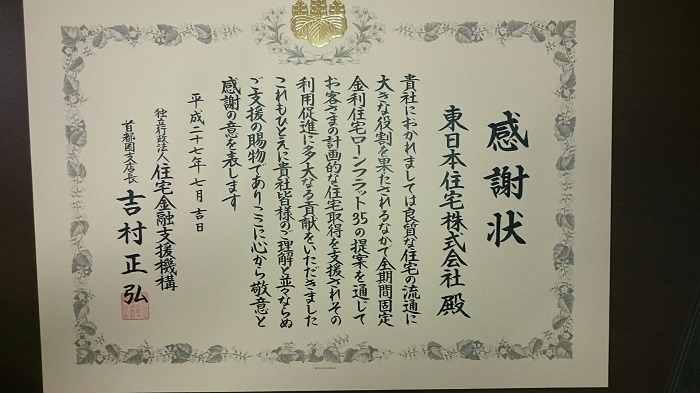 感謝状
東日本住宅株式会社 殿
貴社におかれましては良質な住宅の流通に
大きな役割を果たされるなかで全期間固定
金利住宅ローンフラット35の提案を通して
お客さまの計画的な住宅取得を支援されその
利用促進に多大なる貢献をいただきました
これもひとえに貴社皆様のご理解と並々ならぬ
ご支援の賜物でありここに心から敬意と
感謝の意を表します
平成二十七年七月吉日
独立行政法人住宅金融支援機構
首都圏支店長 吉村正弘